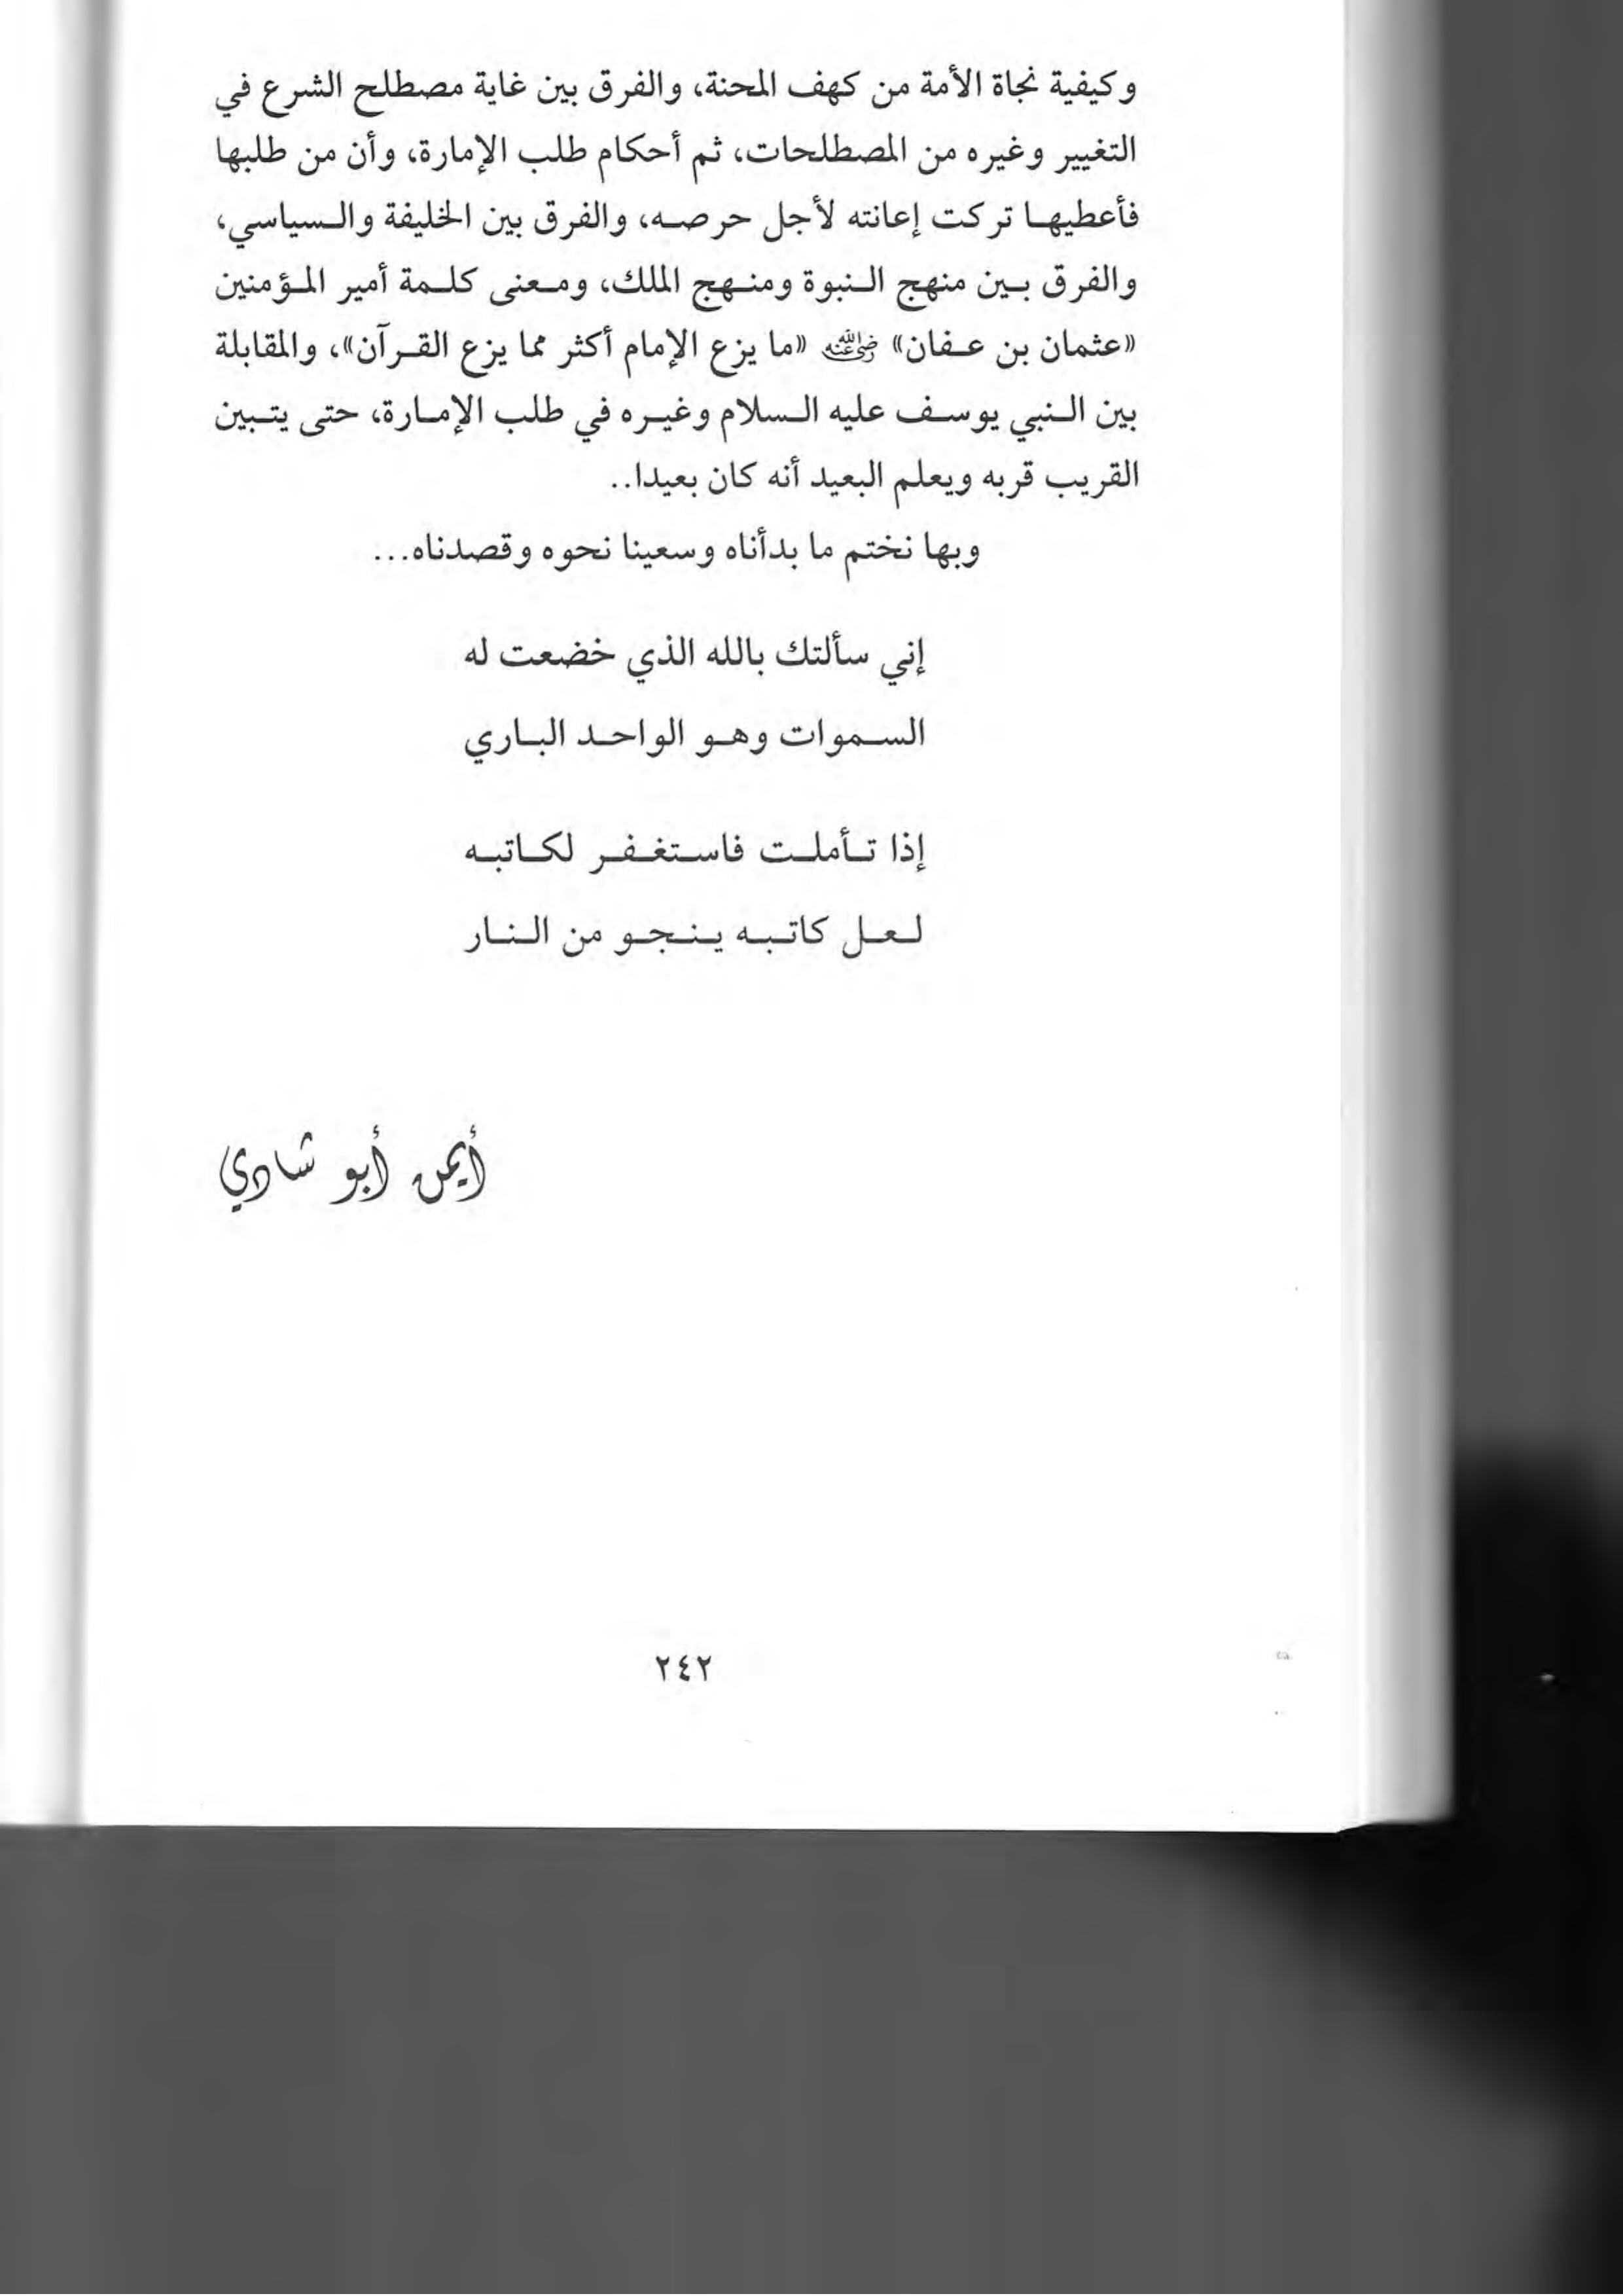 وكيفية نجاة الأمة من كهف المحنة، والفرق بين غاية مصطلح الشرع في
التغيير وغيره من المصطلحات، ثم أحكام طلب الإمارة، وأن من طلبها
فأعطيها تركت إعانته لأجل حرصه، والفرق بين الخليفة والسياسي،
والفرق بين منهج النبوة ومنهج الملك، ومعنى كلمة أمير المؤمنين
«عثمان بن عفان» رضي الله عنه «ما يزع الإمام أكثر مما يزع القرآن»، والمقابلة
بين النبي يوسف عليه السلام وغيره في طلب الإمارة، حتى يتبين
القريب قربه ويعلم البعيد أنه كان بعيدا..
وبها نختم ما بدأناه وسعينا نحوه وقصدناه...
إني سألتك بالله الذي خضعت له
السموات وهو الواحد الباري
إذا تأملت فاستغفر لكاتبه
لعل كاتبه ينجو من النار
أيمن أبو شادي
٢٤٢